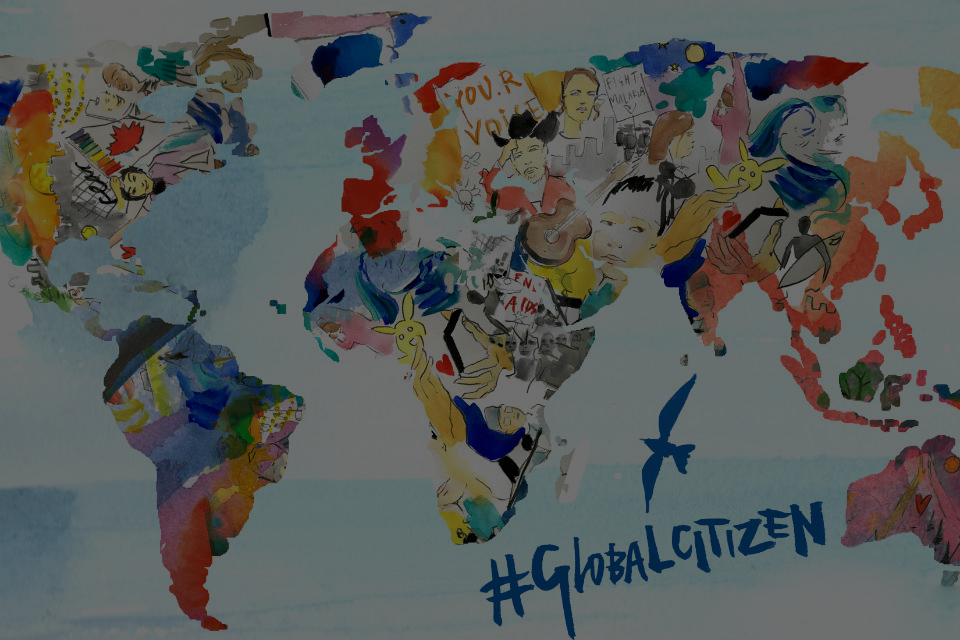 YOU.R
VOICE
FIGHT
MALARIA
EN.
AIDS
#GLOBALCITIZEN